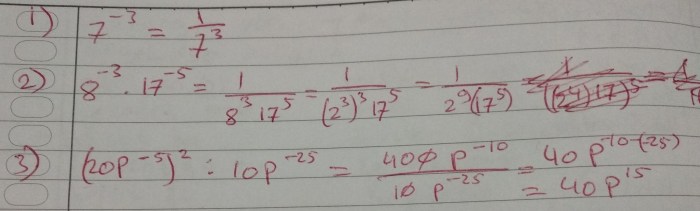 1) 7⁻³ = 1/7³
2) 8⁻³ · 17⁻⁵ = 1/(8³ 17⁵) = 1/((2³)³ 17⁵) = 1/(2⁹(17⁵))
3) (20p⁻⁵)² : 10p⁻²⁵ = 400 p⁻¹⁰/10 p⁻²⁵ = 40 p⁻¹⁰⁻⁽⁻²⁵⁾
= 40p¹⁵